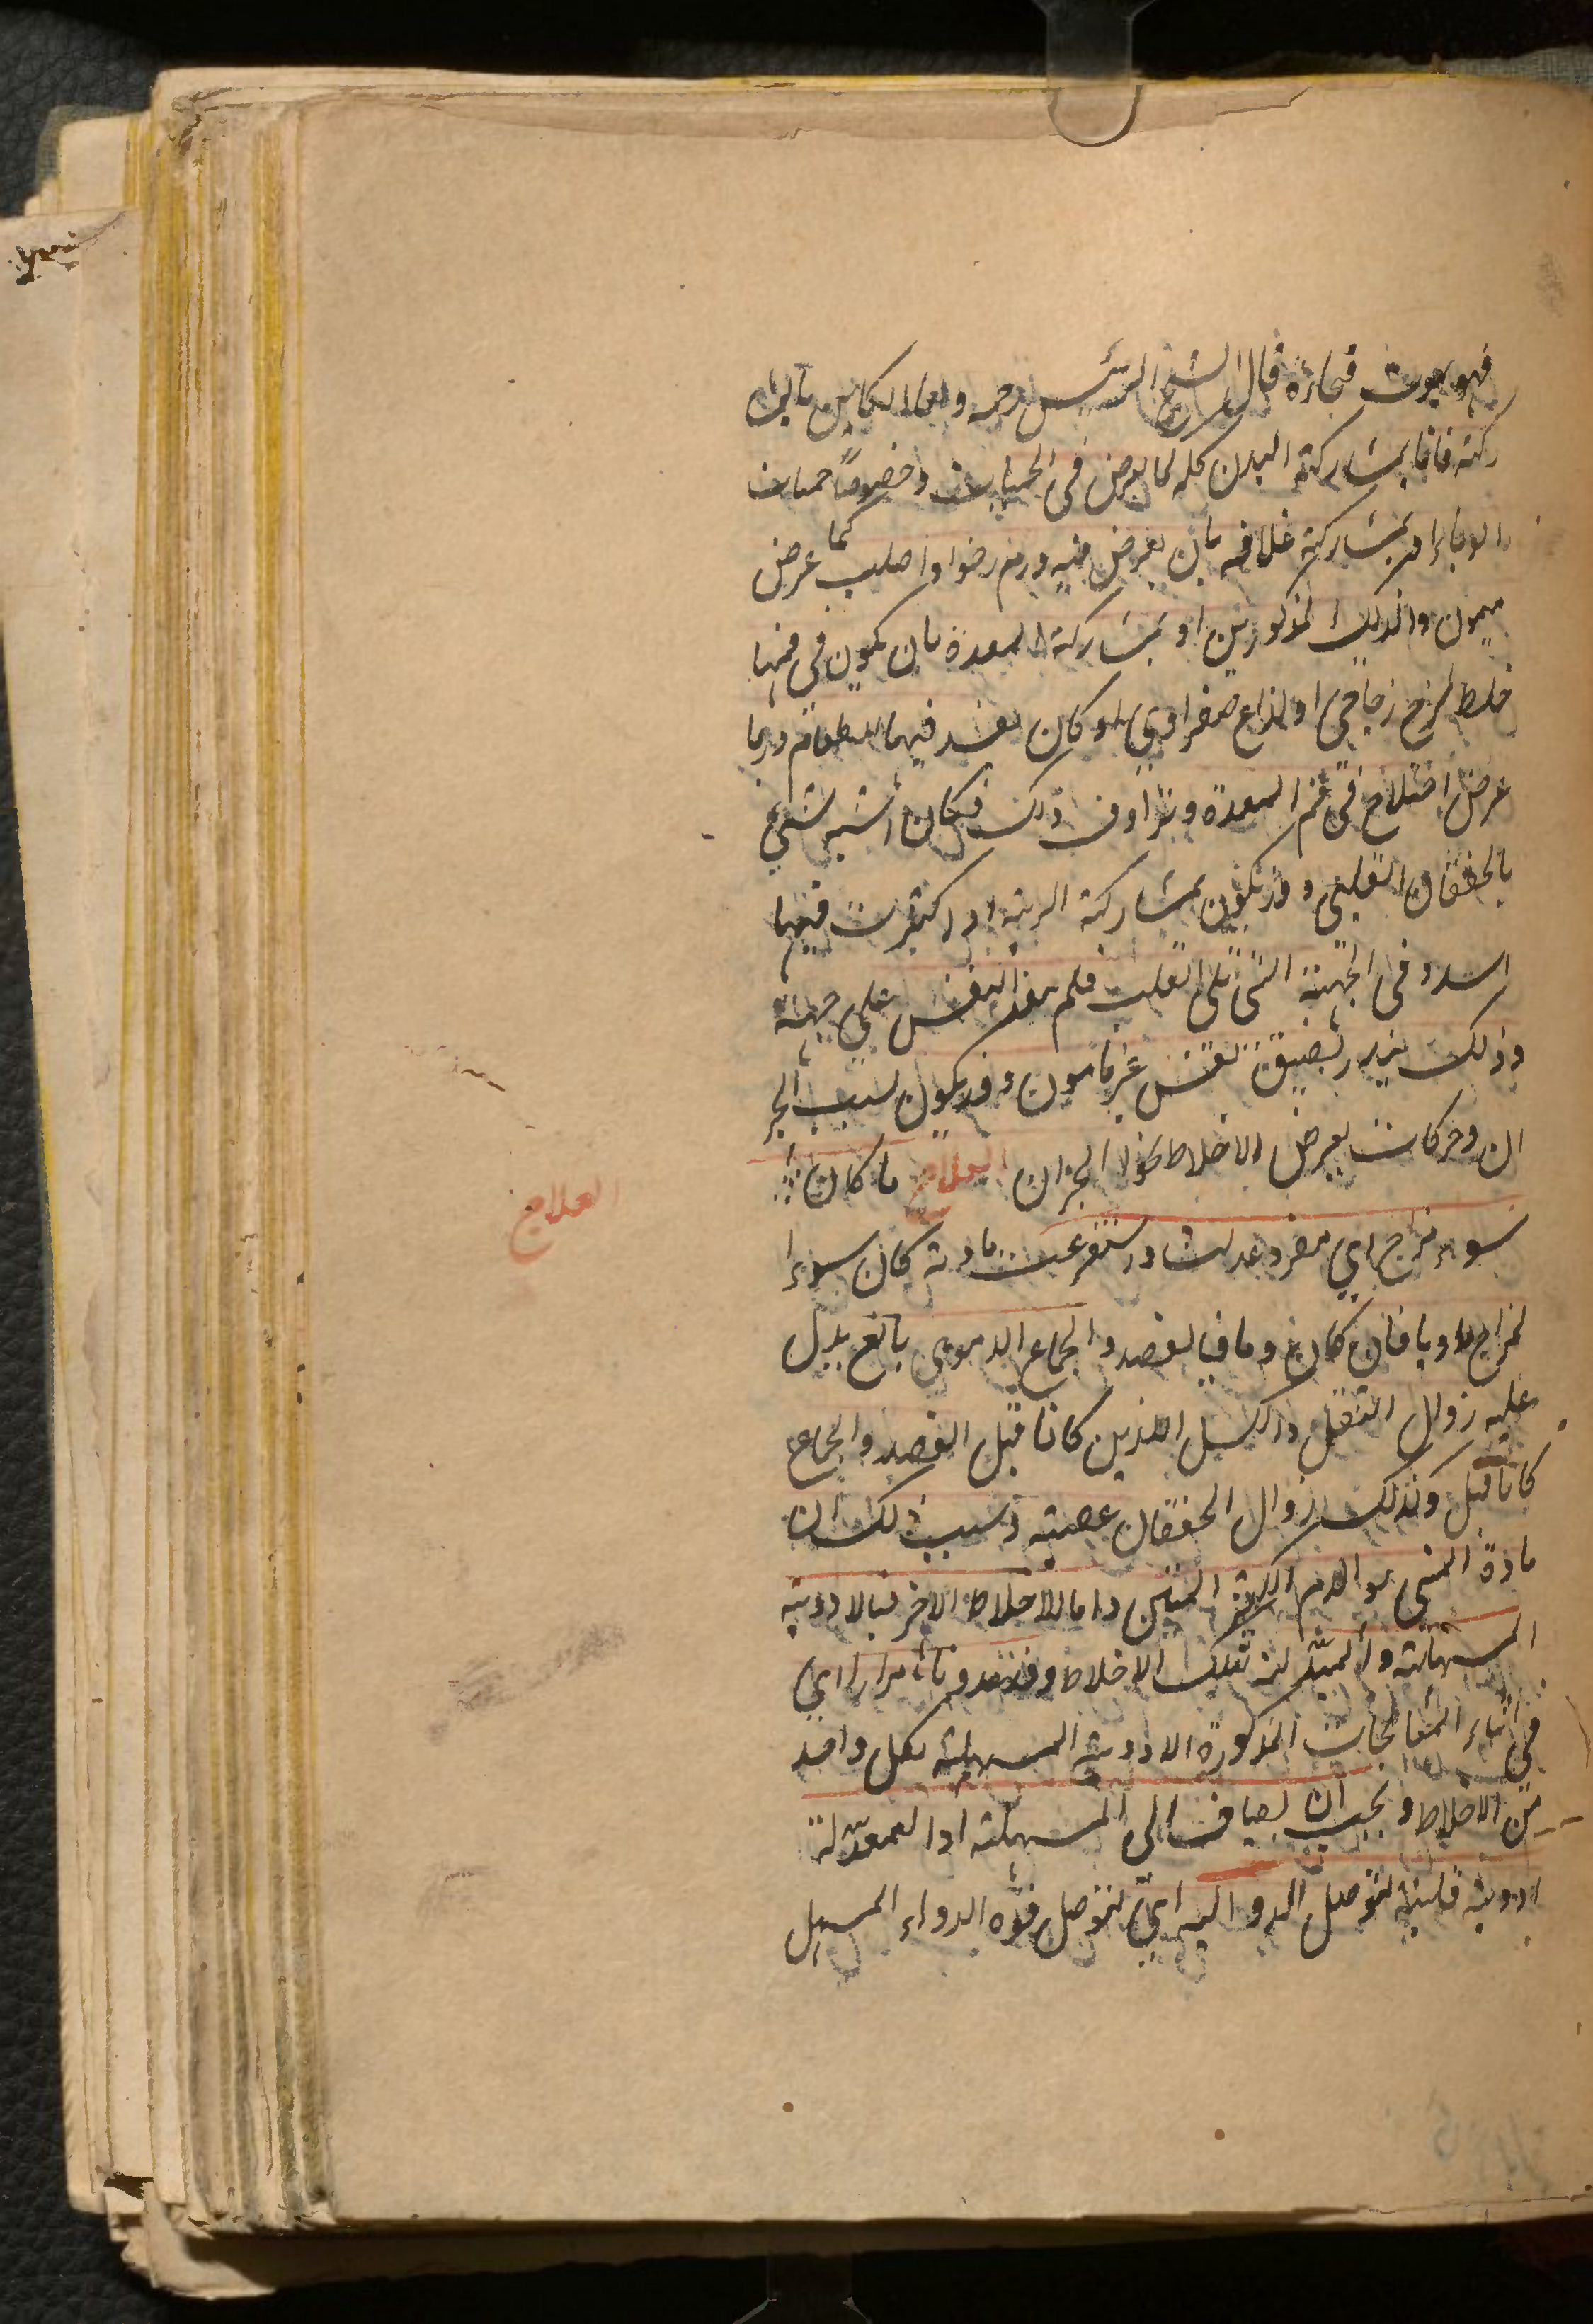 فهو يموت فجاءة قال الشيخ الرئيس رحمه واما الكاين بالمشا
ركته فاما بمشاركة البدن كله كما يعرض فى الحميات وخصوصاً حميات
الوباء او بمشاركة غلافه بان يعرض فيه ورم رخو او صلب كما عرض
ميمون والديك المذكورين او بمشاركة المعدة بان يكون في فمها
خلط لزج زجاجى او لذاع صفراوي او كان يفسد فيها الطعام وربما
عرض اختلاج فى فم المعدة وترادف ذلك فكان اشبه شئ
بالخفقان القلبى وقد يكون بمشاركة الرية اذا كثرت فيها
السدد فى الجهة التى تلى القلب فلم ينفذ النفس على جهته
وذلك ينذر بضيق نفس غير مامون وقد يكون بسبب البحر
ان وحركات يعرض للاخلاط نحو البحران العلاج ما كان
سوء مزاج اي مفرد عدلت او استفرغت مادته كان سوء ا
لمزاج ماديا فان كان دمويا فبالفصد والجماع الدموى بالغ يدل
عليه زوال الثقل والكسل اللذين كانا قبل الفصد والجماع
كانا قبل وكذلك زوال الخفقان عقيبه وسبب ذلك ان
مادة المنى هو الدم الكثير المتين واما الاخلاط الاخر فبالادوية
المسهلة والمبدلة لتلك الاخلاط وقد عدونا مرارا اي
فى اثناء المعالجات المذكورة الادوية المسهلة لكل واحد
من الاخلاط ويجب ان يضاف الى المسهلة او المعدّلة
ادوية قلبية لتوصل الدوا اليه اي لتوصل قوة الدواء المسهل
العلاج